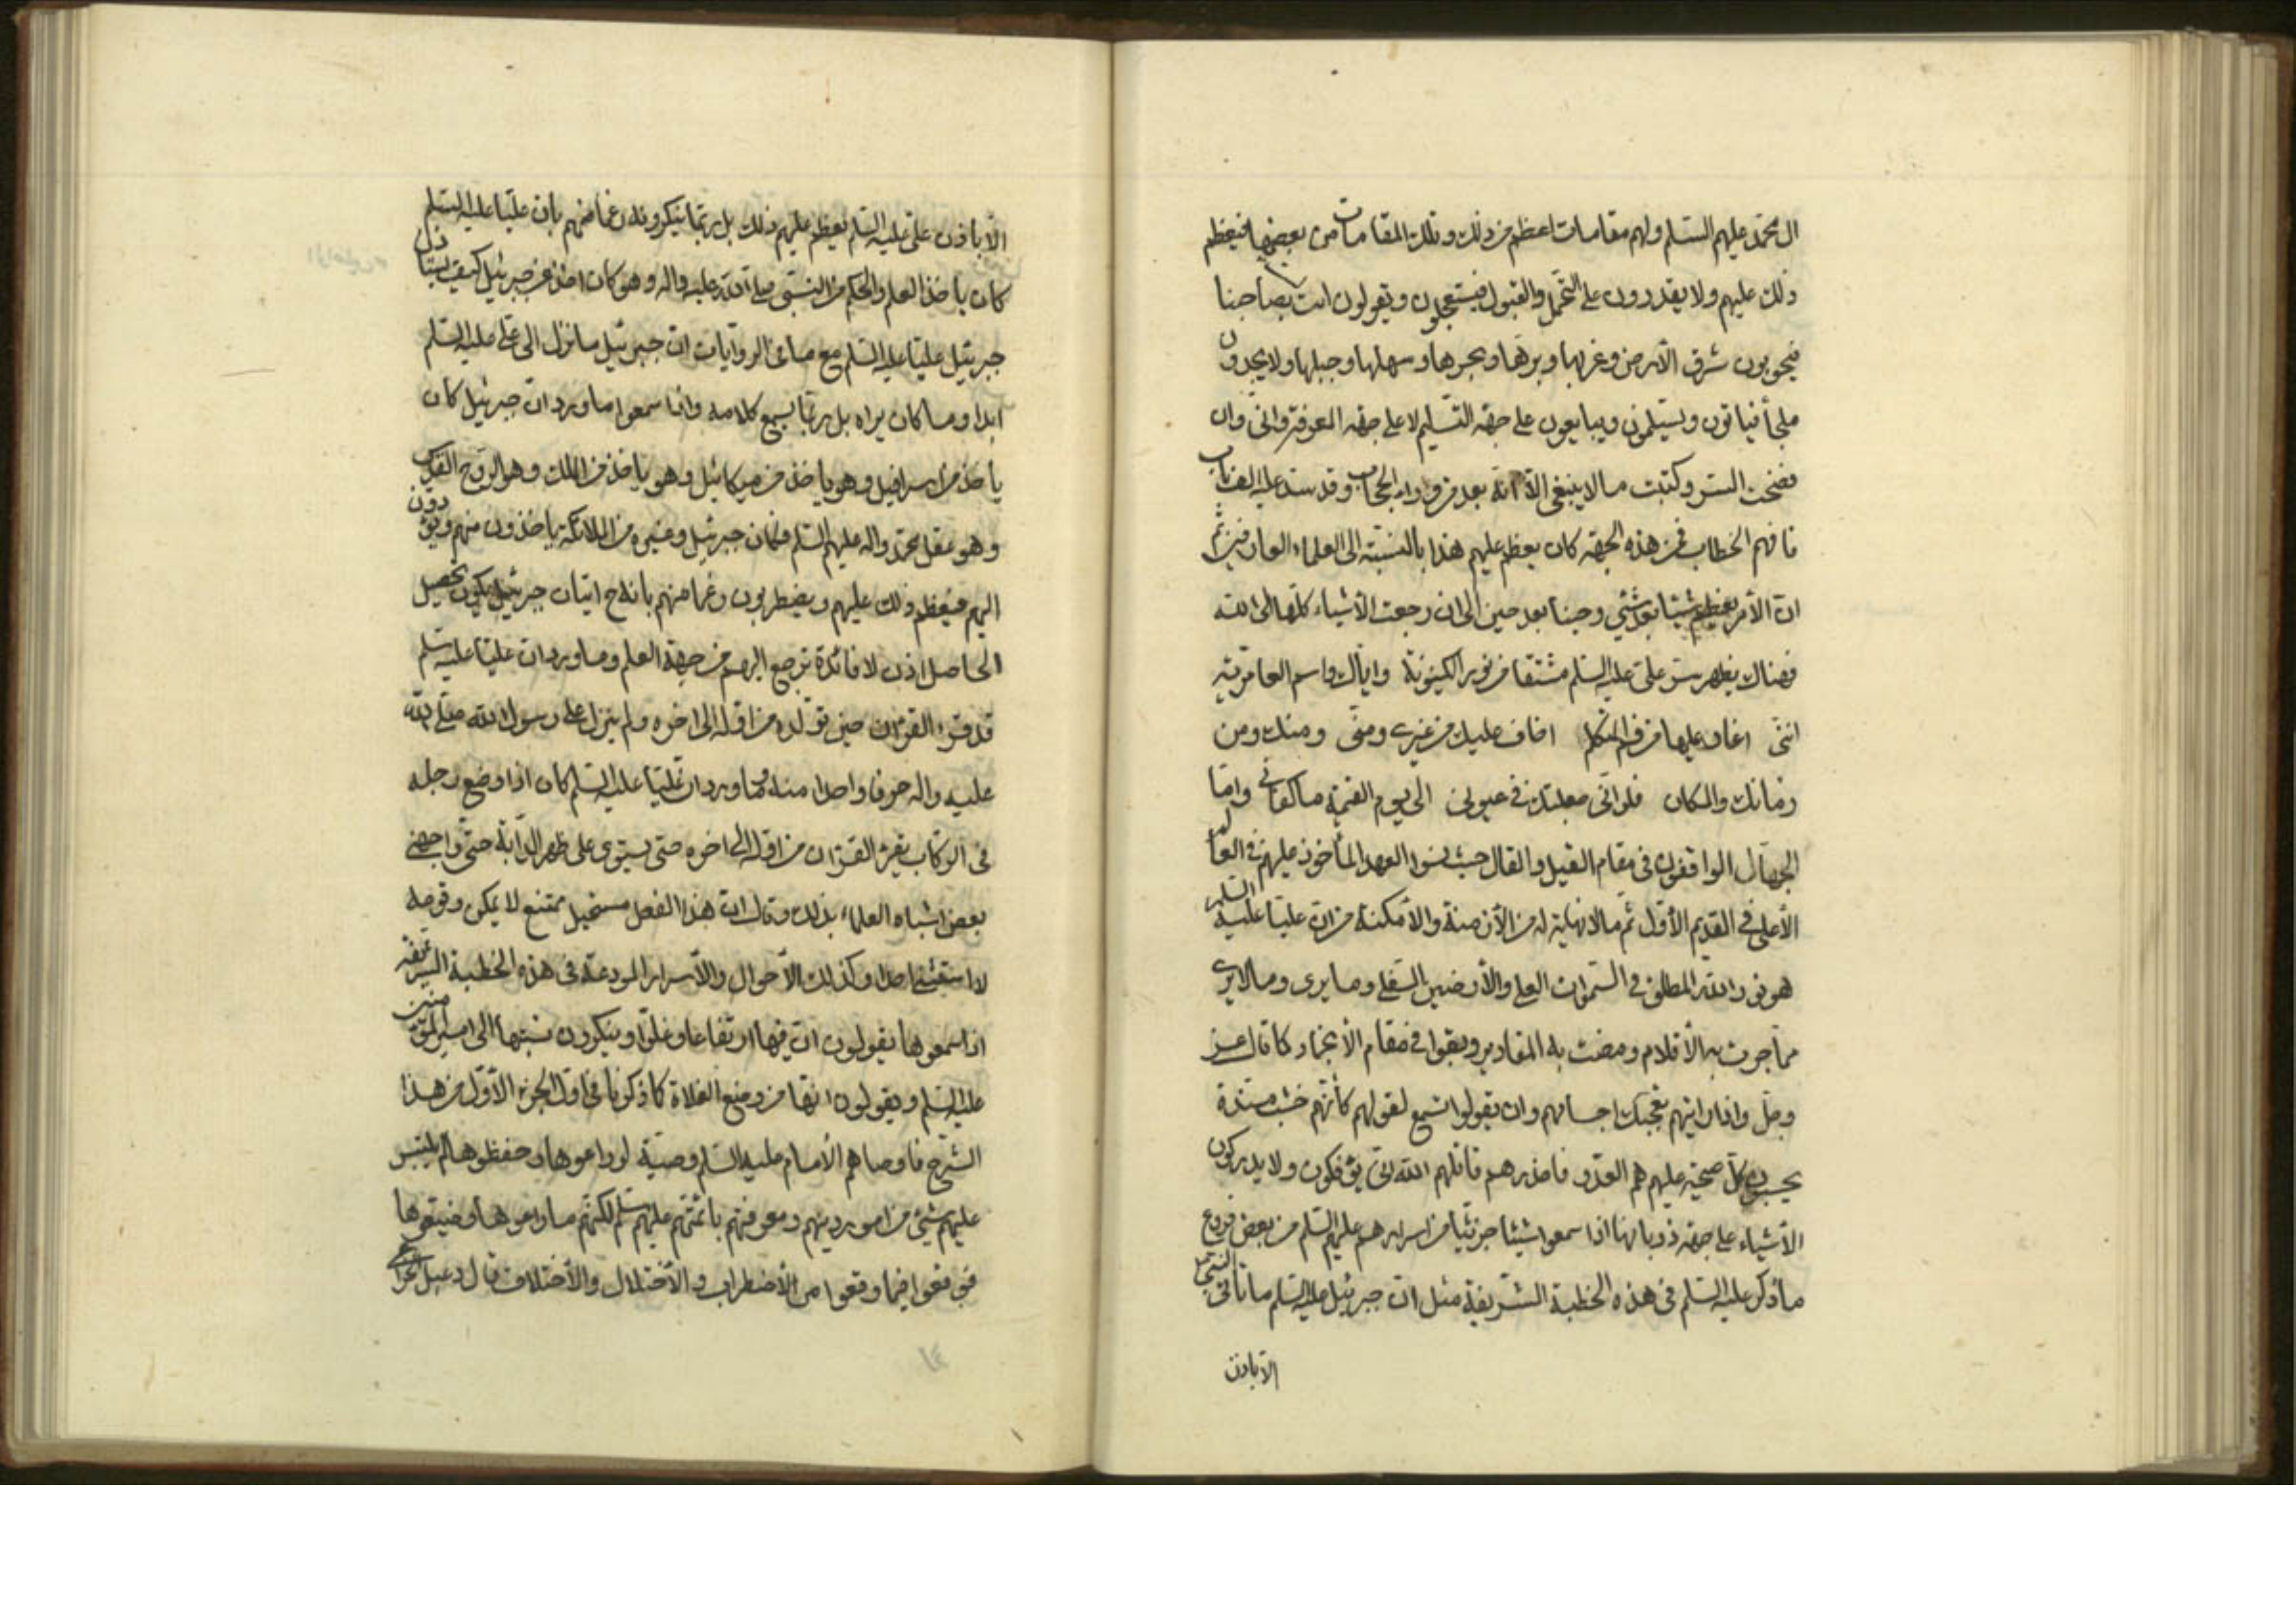 ال محمد عليهم السلام ولهم مقامات اعظم من ذلك وتلك المقامات من بعضها فيعظم
ذلك عليهم ولا يقدرون على التحمل والقبول فيستعجلون ويقولون لست بصاحبنا
فيجوبون شرق الأرض وغربها وبرها وبحرها وسهلها وجبلها ولا يجدون
ملجأ فيأتون ويسلمون ويبايعون على جهة التسليم لا على جهة المعرفة وانى وان
فضحت الستر وكتبت ما لا ينبغي الا انه بعد من وراء الحجاب وقد سد عليه الباب
فافهم الخطاب فمن هذه الجهة كان يعظم عليهم هذا بالنسبة الى العلماء العارفين ثم
ان الأمر يعظم شيئا بعد شيء وحينا بعد حين الى ان رجعت الأشياء كلها الى الله
فهناك يظهر سر علي عليه السلام مشتقا من نور الكينونة واياك واسم العامرية
انني اغار عليها من فم المتكلم اخاف عليك من غيري ومني ومنك ومن
زمانك والمكان فلو اني جعلتك في عيوني الى يوم القيمة ما كفاني واما
الجهال الواقفون في مقام القيل والقال حيث نسوا العهد المأخوذ عليهم في العالم
الأعلى في القديم الأول ثم ما لا نهاية له من الأزمنة والأمكنة من ان عليا عليه السلم
هو نور الله المطلق في السموات العلى والأرضين السفلى وما يرى وما لا يرى
مما جرت به الأقلام ومضت به المقادير وبقوا في مقام الانجماد كما قال عز
وجل واذا رايتهم تعجبك اجسامهم وان يقولوا تسمع لقولهم كأنهم خشب مسندة
يحسبون كل صيحة عليهم هم العدو فاحذرهم قاتلهم الله انى يؤفكون ولا يدركون
الأشياء على جهة ذوبانها اذا سمعوا شيئا جزئيا من اسرارهم عليهم السلم من بعض فروع
ما ذكر عليه السلم في هذه الخطبة الشريفة مثل ان جبرئيل عليه السلم ما تأتى النبي
الا باذن
الا باذن علي عليه السلم يعظم عليهم ذلك بل ربما ينكرونه زعما منهم بان عليا عليه السلم
كان يأخذ العلم والحكم من النبي صلى الله عليه واله وهو كان اخذ عن جبرئيل كيف يستأذن
جبرئيل عليا عليه السلم مع ما في الروايات ان جبرئيل ما نزل الى علي عليه السلم
ابدا وما كان يراه بل ربما يسمع كلامه واذا سمعوا ما ورد ان جبرئيل كان
يأخذ من اسرافيل وهو يأخذ من ميكائيل وهو يأخذ من الملك وهو الروح القدس
وهو عقل محمد واله عليهم السلم فكان جبرئيل وغيره من الملائكة يأخذون منهم ويؤدون
اليهم فيعظم ذلك عليهم ويضطربون زعما منهم بانه ح اتيان جبرئيل يكون تحصيل
الحاصل اذن لا فائدة ترجع اليهم من جهة العلم وما ورد ان عليا عليه سلم
قد قرء القرءان حين تولده من اوله الى اخره ولم ينزل على رسول الله صلى الله
عليه واله حرفا واحدا منه وما ورد ان عليا عليه السلم كان اذا وضع رجله
في الركاب يقرء القرءان من اوله الى اخره حتى يستوي على ظهر الدابة حتى واجهني
بعض اشباه العلماء بذلك وقال ان هذا الفعل مستحيل ممتنع لا يمكن وقوعه
وكذلك الأحوال والأسرار المودعة في هذه الخطبة الشريفة
اذا سمعوها يقولون ان فيها ارتفاعا وغلوا وينكرون نسبتها الى امير المؤمنين
عليه السلم ويقولون انها من وضع الغلاة كما ذكرنا في اول الجزء الأول من هذا
الشرح فاوصاهم الأمام عليه السلم وصية لو راعوها وحفظوها لم يلتبس
عليهم شيء من امور دينهم ومعرفتهم بائمتهم عليهم سلم لكنهم ما راعوها وضيعوها
فوقعوا فيما وقعوا من الأضطراب والأختلال والأختلاف قال دعبل الخزاعي